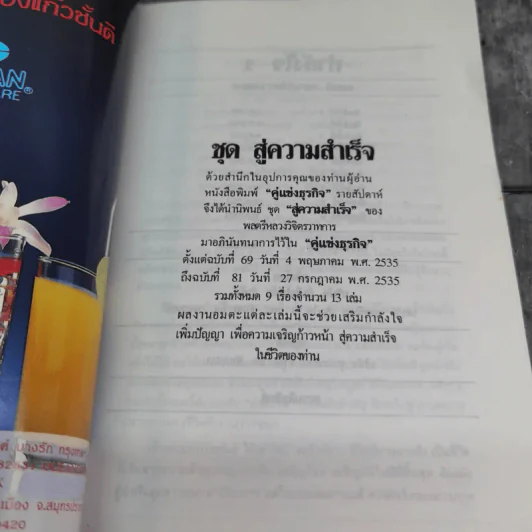 องแก้วชั้นดี
AN
ARE®
ชุด สู่ความสำเร็จ
ด้วยสำนึกในอุปการคุณของท่านผู้อ่าน
หนังสือพิมพ์ "คู่แข่งธุรกิจ" รายสัปดาห์
จึงได้นำนิพนธ์ ชุด "สู่ความสำเร็จ" ของ
พลตรีหลวงวิจิตรวาทการ
มาอภินันทนาการไว้ใน "คู่แข่งธุรกิจ"
ตั้งแต่ฉบับที่ 69 วันที่ 4 พฤษภาคม พ.ศ. 2535
ถึงฉบับที่ 81 วันที่ 27 กรกฎาคม พ.ศ. 2535
รวมทั้งหมด 9 เรื่องจำนวน 13 เล่ม
ผลงานอมตะแต่ละเล่มนี้จะช่วยเสริมกำลังใจ
เพิ่มปัญญา เพื่อความเจริญก้าวหน้า สู่ความสำเร็จ
ในชีวิตของท่าน
บางรัก กรุงเทพ
เมือง จ.สมุทรปรา
0420